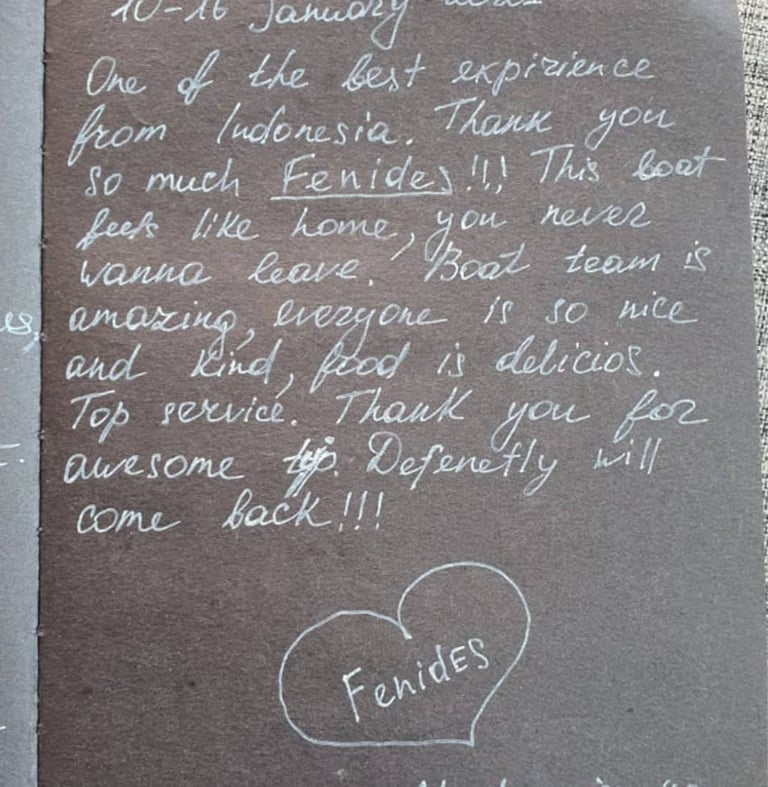 10-16 January
One of the best expirience
from Indonesia. Thank you
so much Fenides!!! This boat
feels like home, you never
wanna leave. Boat team is
amazing, everyone is so nice
and kind, food is delicios.
Top service. Thank you for
awesome trip. Defenetly will
come back!!!
Fenides